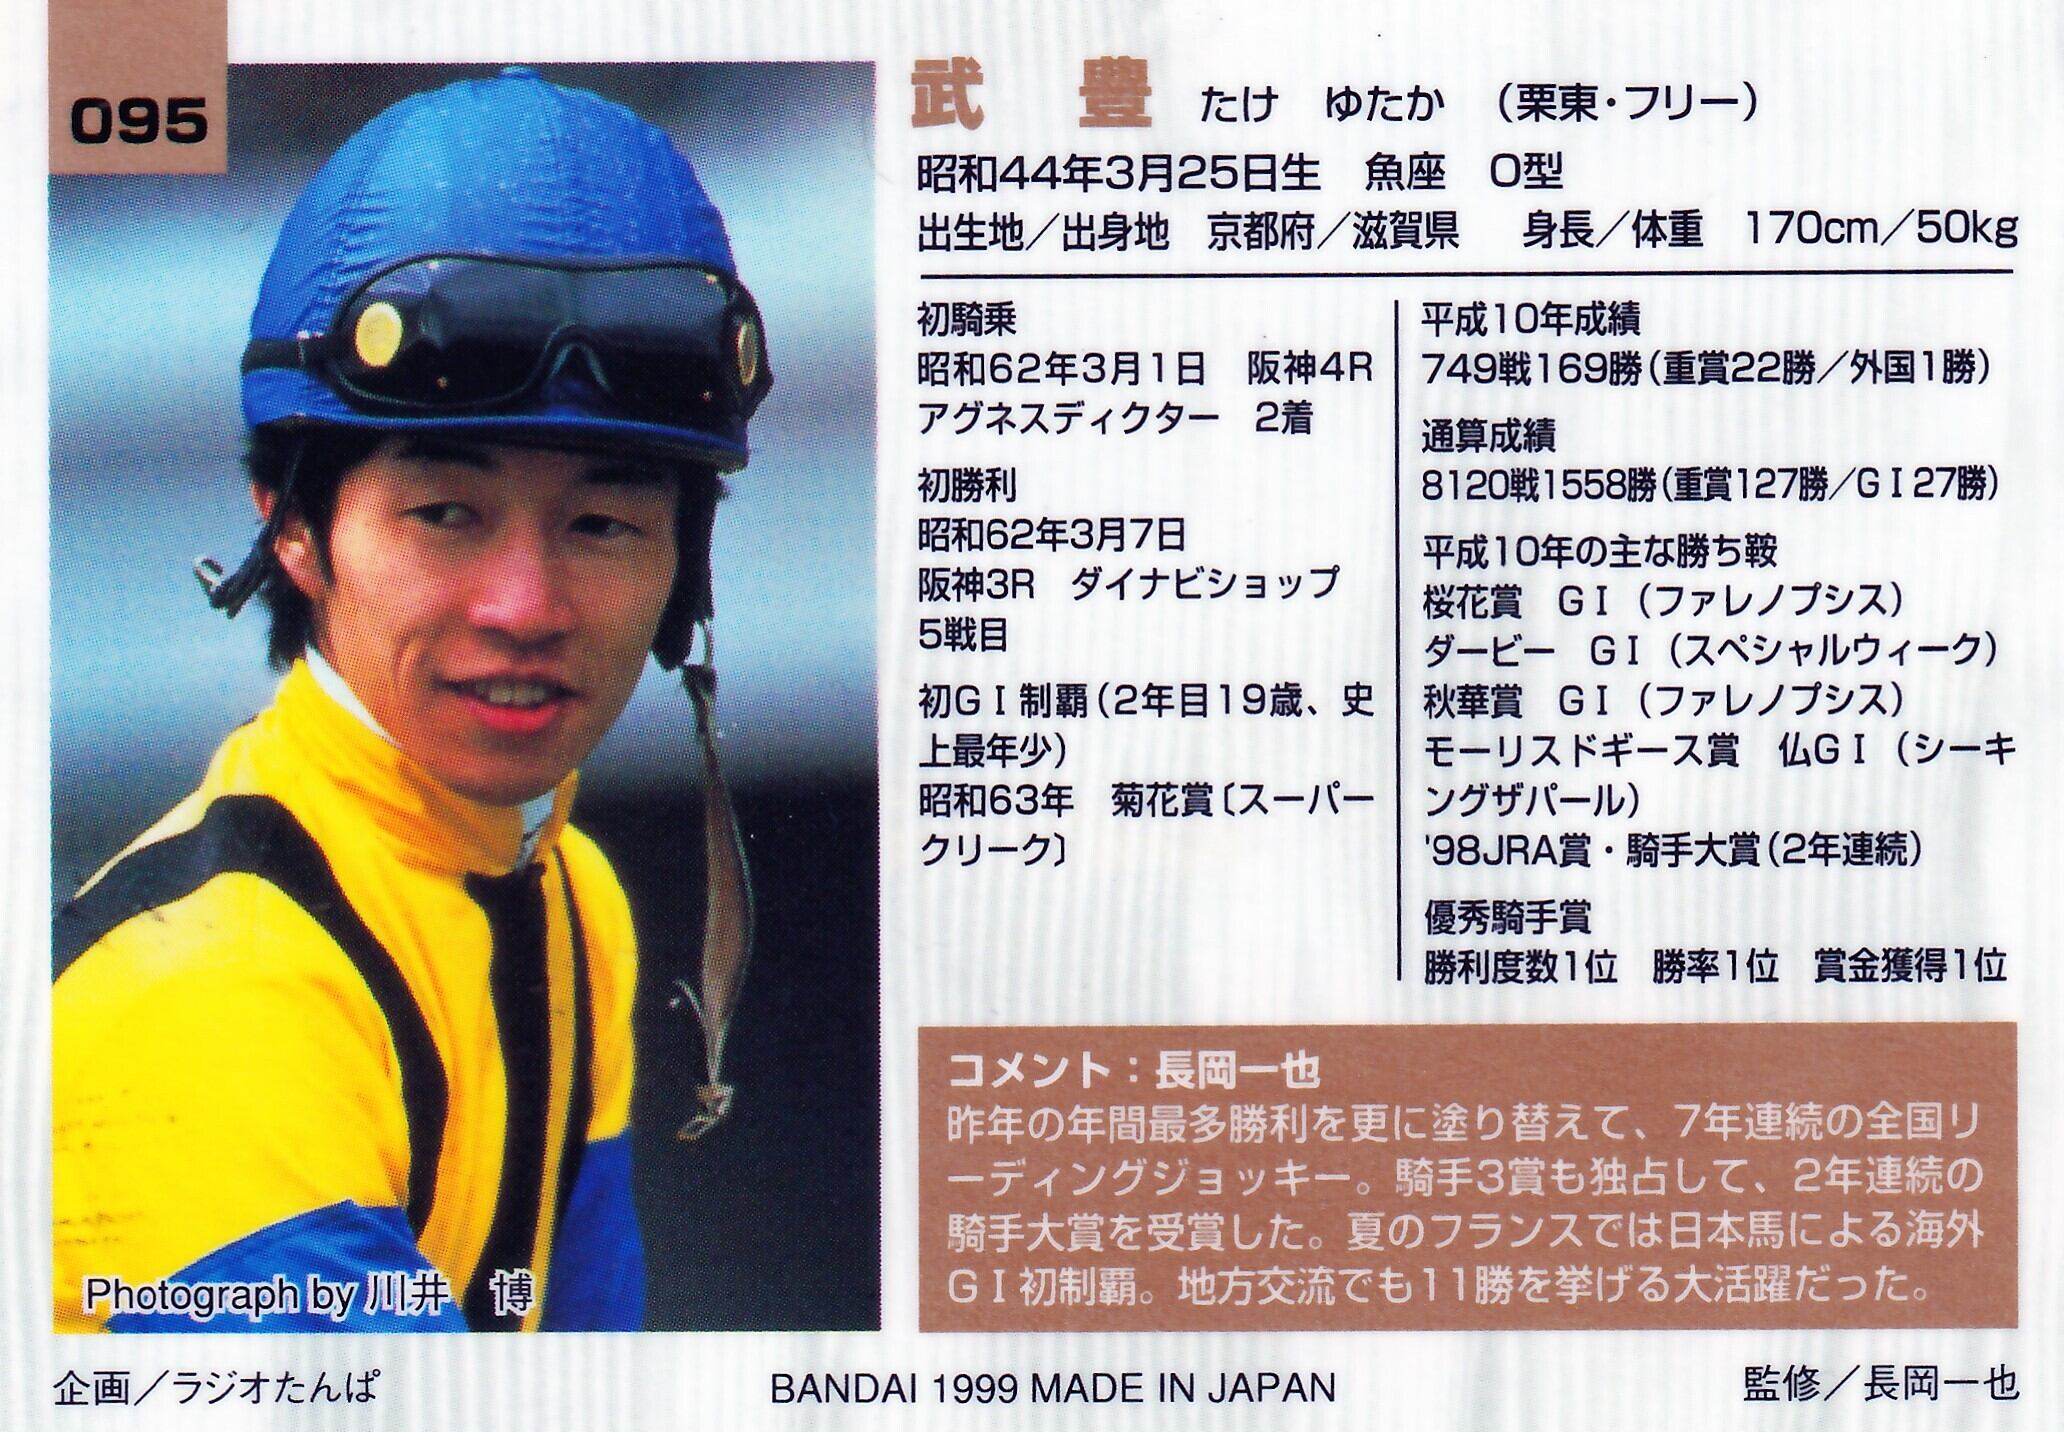 095
武 豊 たけ ゆたか （栗東・フリー）
昭和44年3月25日生 魚座 O型
出生地／出身地 京都府／滋賀県 身長／体重 170cm／50kg
初騎乗
昭和62年3月1日 阪神4R
アグネスディクター 2着
初勝利
昭和62年3月7日
阪神3R ダイナビショップ
5戦目
初GⅠ制覇（2年目19歳、史
上最年少）
昭和63年 菊花賞〔スーパー
クリーク〕
平成10年成績
749戦169勝（重賞22勝／外国1勝）
通算成績
8120戦1558勝（重賞127勝／GⅠ27勝）
平成10年の主な勝ち鞍
桜花賞 GⅠ（ファレノプシス）
ダービー GⅠ（スペシャルウィーク）
秋華賞 GⅠ（ファレノプシス）
モーリスドギース賞 仏GⅠ（シーキ
ングザパール）
'98JRA賞・騎手大賞（2年連続）
優秀騎手賞
勝利度数1位 勝率1位 賞金獲得1位
コメント：長岡一也
昨年の年間最多勝利を更に塗り替えて、7年連続の全国リ
ーディングジョッキー。騎手3賞も独占して、2年連続の
騎手大賞を受賞した。夏のフランスでは日本馬による海外
GⅠ初制覇。地方交流でも11勝を挙げる大活躍だった。
Photograph by 川井 博
企画／ラジオたんぱ
BANDAI 1999 MADE IN JAPAN
監修／長岡一也